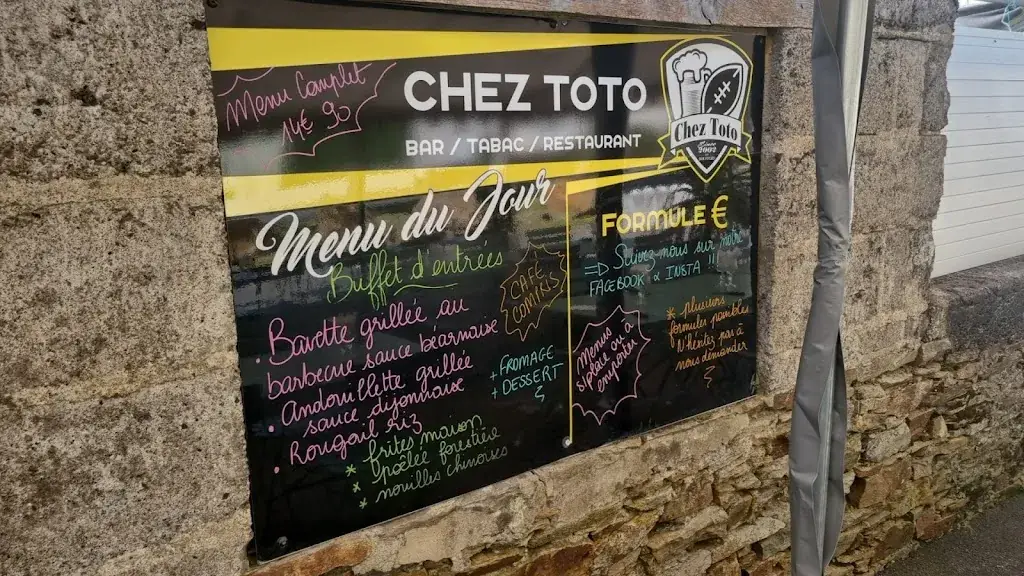 Menu Complet
14€ 90
CHEZ TOTO
BAR / TABAC / RESTAURANT
Chez Toto
Since
2002
Menu du Jour
Buffet d'entrées
CAFÉ
COMPRIS
• Bavette grillée au
barbecue sauce béarnaise
• Andouillette grillée
sauce dijonnaise
• Rougail riz
* frites maison
* poêlée forestière
* nouilles chinoises
+ FROMAGE
+ DESSERT
FORMULE €
=> Suivez-nous sur notre
FACEBOOK & INSTA !!!
Menus
sur place et à
emporter
* plusieurs
formules possibles
N'hésitez pas à
nous demander